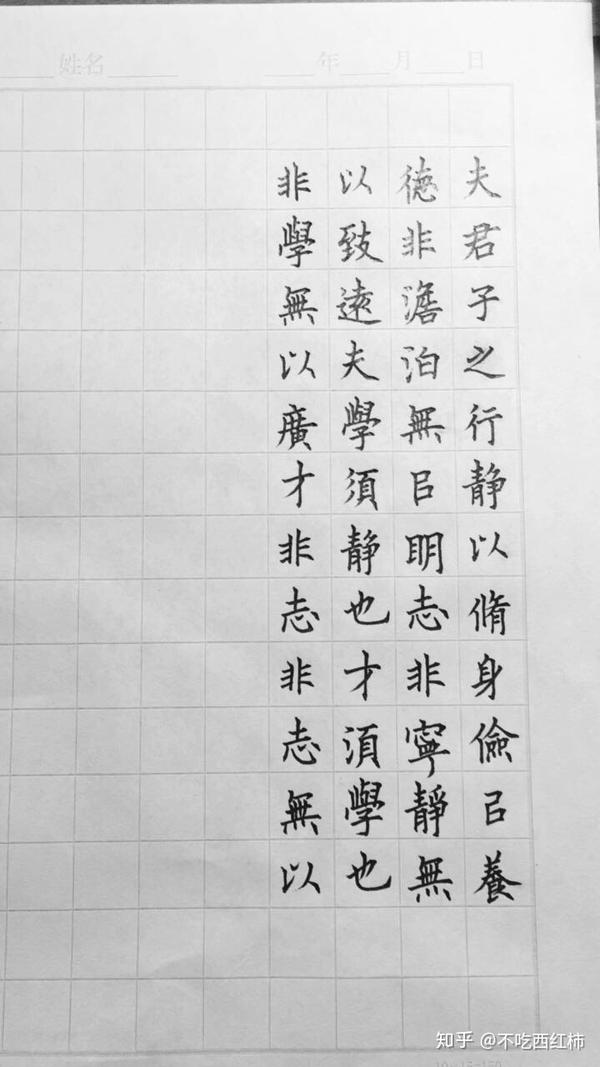 姓名 年 月 日
夫君子之行静以脩身儉㠯養
德非澹泊無㠯眀志非寧靜無
以致遠夫學須静也才湏學也
非學無以廣才非志非志無以
知乎 @不吃西红柿